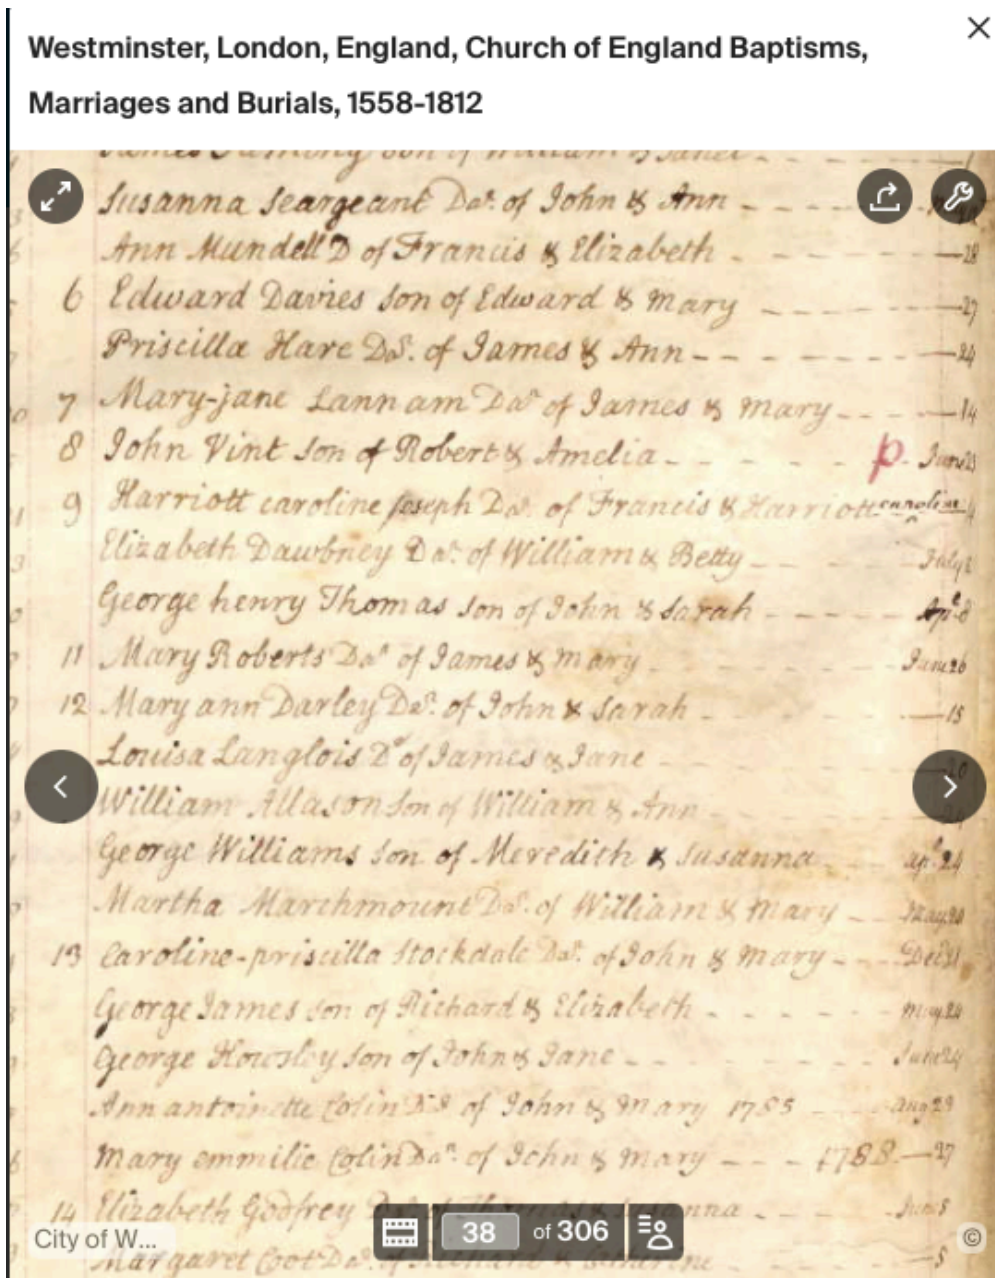 Westminster, London, England, Church of England Baptisms,
Marriages and Burials, 1558-1812
Susanna Seargeant Dar. of John & Ann
Ann Mundell D of Francis & Elizabeth - 28
6 Edward Davies Son of Edward & Mary - 27
Priscilla Hare Dar. of James & Ann - 24
7 Mary-jane Lannam Dar of James & Mary - 14
8 John Vint Son of Robert & Amelia - p. June 23
9 Harriott caroline Joseph Dar. of Francis & Harriott caroline 4
Elizabeth Dawbney Dar. of William & Betty - July
George henry Thomas Son of John & Sarah - Apl. 8
11 Mary Roberts Dar of James & Mary - June 26
12 Mary ann Darley Dar. of John & Sarah - 15
Louisa Langlois Dr of James & Jane - 20
William Allason Son of William & Ann
George Williams Son of Meredith & Susanna - apl. 24
Martha Marchmount Dar. of William & Mary - May
13 Caroline-priscilla Stockdale Dar. of John & Mary - Dec 31
George James Son of Richard & Elizabeth - May 24
George Howsley Son of John & Jane - June 24
Ann antoinette Colin Dar of John & Mary 1785 - aug 29
Mary emmilie Colin Dar. of John & Mary - 1788 - 27
14 Elizabeth Godfrey - June 8
Margaret Coot Dar. of - 5
City of W...
38 of 306
©